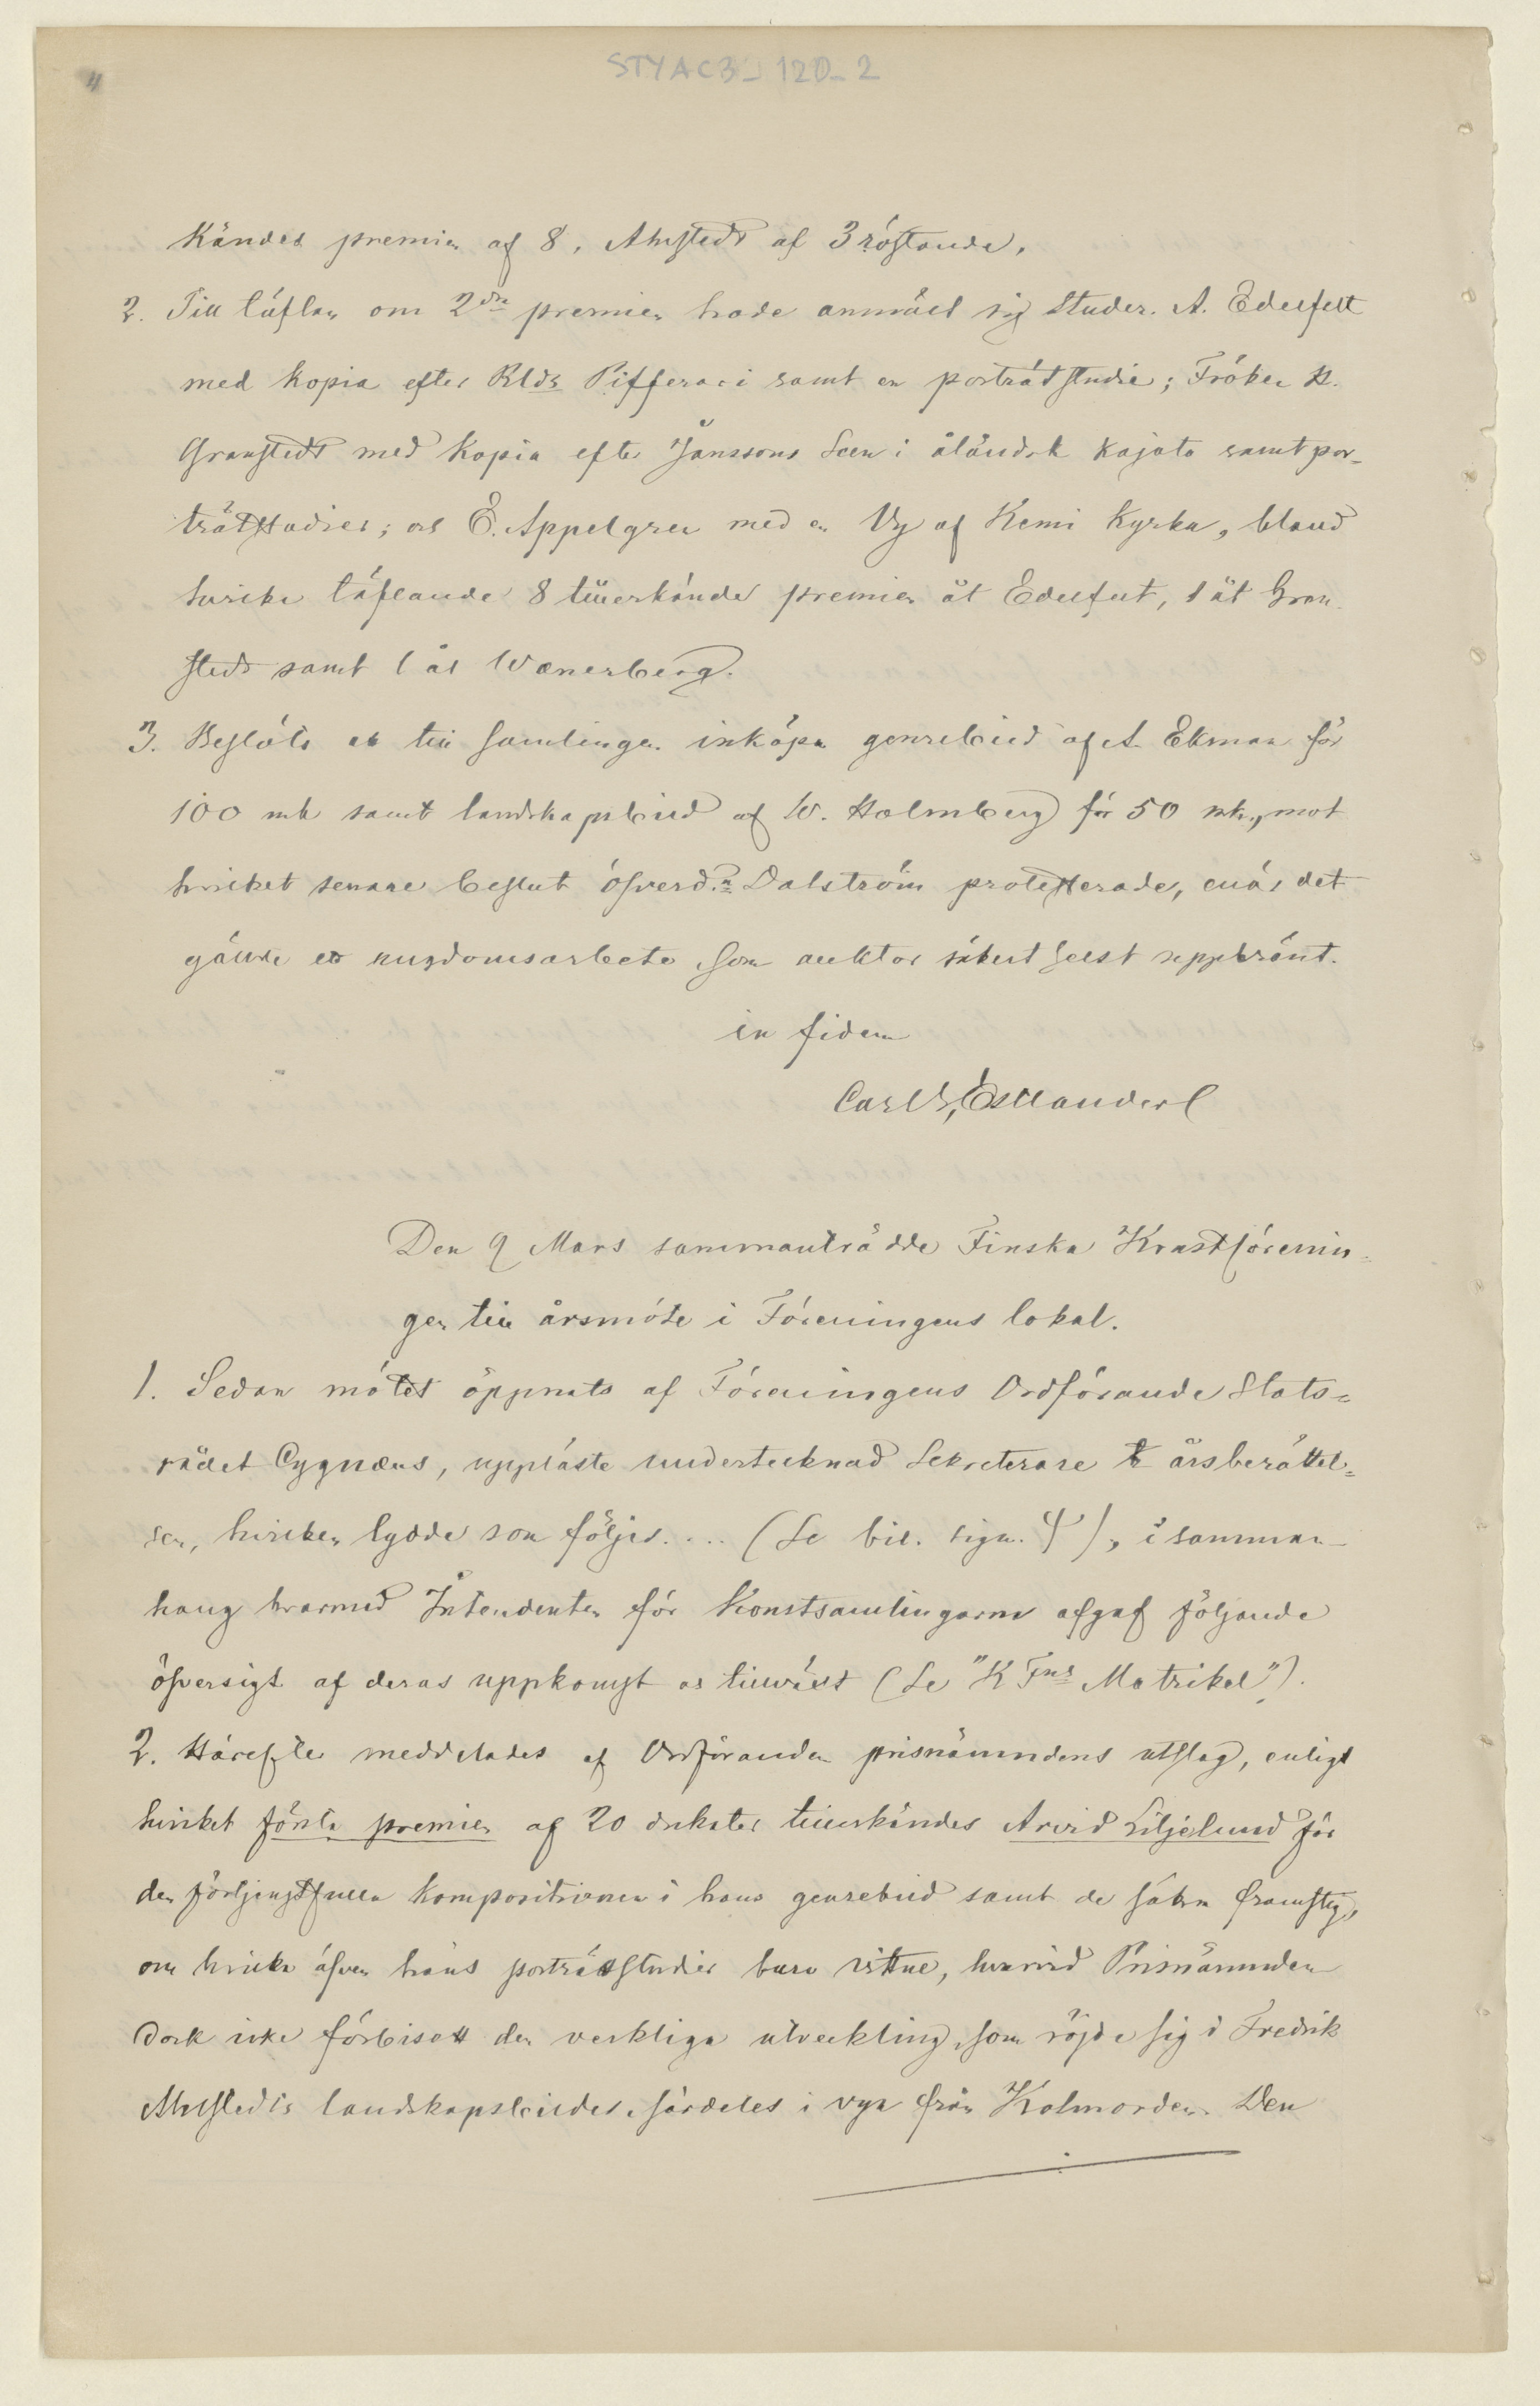 STYAC3_120_2
4
kändes premien af 8, Ahlstedt af 3 röstande.
2. Till täflan om 2dra premien hade anmält sig Studer. A. Edelfelt
med kopia efter Blds Pifferari samt en porträtstudie; Fröken H.
Granstedt med kopia efter Janssons Scen i åländsk kajuta samt por-
trätstudier; och E. Appelgren med en Vy af Kemi Kyrka, bland
hvilka täflande 8 tillerkände premien åt Edelfelt, 1 åt Gran-
stedt samt 1 åt Wænerberg.
3. Beslöts att till samlingen inköpa genrebild af A. Ekman för
100 mk samt landskapsbild af W. Holmberg för 50 mk., mot
hvilket senare beslut öfverd.n Dalström protesterade, enär det
gällde ett ungdomsarbete som auktor säkert helst uppbränt.
in fidem
Carl G. Estlander
Den 9 Mars sammanträdde Finska Konstförenin-
gen till årsmöte i Föreningens lokal.
1. Sedan mötet öppnats af Föreningens Ordförande Stats-
rådet Cygnæus, uppläste undertecknad Sekreterare årsberättel-
sen, hvilken lydde som följer.... (Se bil. sign. Ψ), i samman-
hang hvarmed Intendenten för Konstsamlingarna afgaf följande
öfversigt af deras uppkomst och tillväxt (Se "K Fns Matrikel").
2. Härefter meddelades af Ordföranden prisnämndens utslag, enligt
hvilket första premien af 20 dukater tillerkändes Arvid Liljelund för
den förtjenstfulla kompositionen i hans genrebild samt de säkra framsteg,
om hvilka äfven hans porträttstudier buro vittne, hvarvid Prisnämnden
dock icke förbisett den verkliga utveckling, som röjde sig i Fredrik
Ahlstedts landskapsbilder, särdeles i vyn från Kolmorden. Den